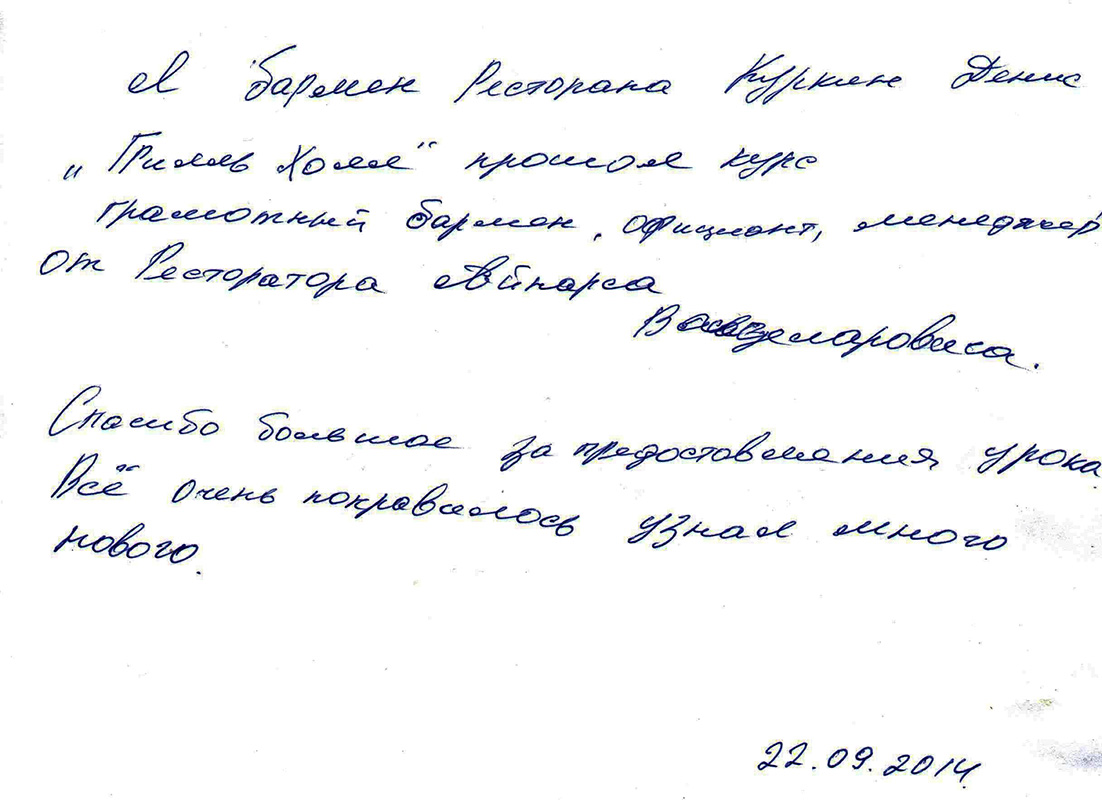 Я бармен Ресторана Куркин Денис
„Грилль Холл" прошол курс
грамотный бармен, официонт, менеджер
от Ресторатора Айнарса
Спасибо большое за предоставления урока
Всё очень понравилось узнал много
нового.
22.09.2014